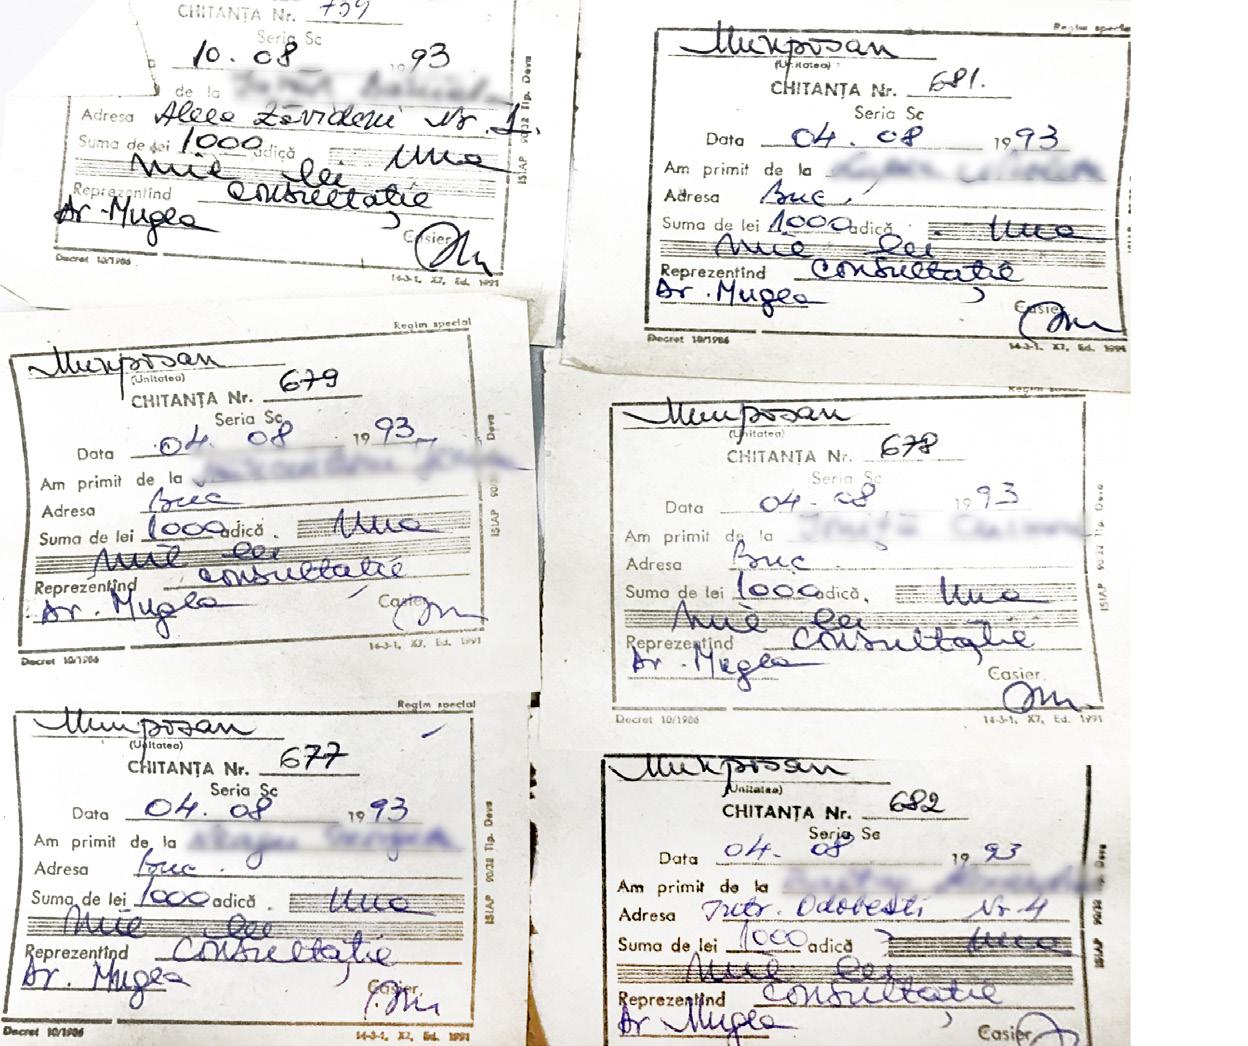 CHITANȚA Nr. 739
Seria Sc
10. 08 1993
de la
Adresa Aleea Zăvideni Nr. 1.
Suma de lei 1000 adică Una
mie lei
Reprezentînd consultație
Dr. Mugea
Casier
Decret 10/1986 14-3-1, X7, Ed. 1991
ISIAP 90/32 Tip. Deva
Regim special
Munposan
(Unitatea)
CHITANȚA Nr. 681.
Seria Sc
Data 04. 08 1993
Am primit de la
Adresa Buc.
Suma de lei 1000 adică Una
mie lei
Reprezentînd consultație
Dr. Mugea
Casier
Decret 10/1986 14-3-1, X7, Ed. 1991
Regim special
Munposan
(Unitatea)
CHITANȚA Nr. 679
Seria Sc
Data 04. 08 1993
Am primit de la
Adresa Buc
Suma de lei 1000 adică. Una
mie lei
Reprezentînd consultație
Dr. Mugea
Casier
Decret 10/1986 14-3-1, X7, Ed. 1991
Regim special
Munposan
(Unitatea)
CHITANȚA Nr. 678
Seria Sc
Data 04. 08 1993
Am primit de la
Adresa Buc
Suma de lei 1000 adică. Una
mie lei
Reprezentînd consultație
Dr. Mugea
Casier
Decret 10/1986 14-3-1, X7, Ed. 1991
ISIAP 90/32 Tip. Deva
Regim special
Munposan
(Unitatea)
CHITANȚA Nr. 677
Seria Sc
Data 04. 08 1993
Am primit de la
Adresa Buc.
Suma de lei 1000 adică. Una
mie lei
Reprezentînd consultație
Dr. Mugea
Casier
Decret 10/1986 14-3-1, X7, Ed. 1991
ISIAP 90/32 Tip. Deva
Munposan
(Unitatea)
CHITANȚA Nr. 682
Seria Sc
Data 04. 08 1993
Am primit de la
Adresa Intr. Odobești Nr. 4
Suma de lei 1000 adică Una
mie lei
Reprezentînd consultație
Dr. Mugea
Casier